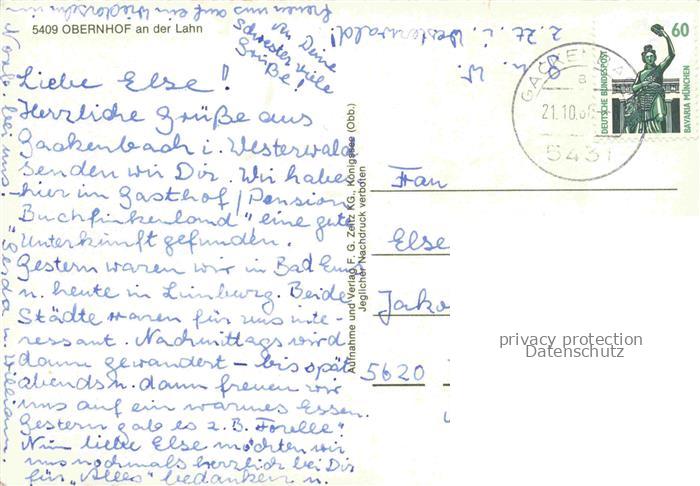 5409 OBERNHOF an der Lahn
Liebe Else!
Herzliche Grüße aus
Gackenbach i. Westerwald
senden wir Dir. Wir haben
hier im Gasthof / Pension
Buchfinkenland" eine gute
Unterkunft gefunden.
Gestern waren wir in Bad Ems
u. heute in Limburg. Beide
Städte waren für uns inte-
ressant. Nachmittags wird
dann gewandert - bis spät
abends u. dann freuen wir
uns auf ein warmes Essen.
Gestern gab es z. B. Forelle"
Nun liebe Else möchten wir
uns nochmals herzlich bei Dir
für "Alles" bedanken u.
freuen uns auf ein Wiedersehen im
bei uns! Gerda u. William.
von Deine
Schwester viele
Grüße!
z. Zt. i. Westerwald!
Aufnahme und Verlag F. G. Zeitz KG., Königssee (Obb.)
Jeglicher Nachdruck verboten
GACKENBA
a
21.10.
5431
60
DEUTSCHE BUNDESPOST
BAVARIA MÜNCHEN
Frau
Else
Jako
5620
privacy protection
Datenschutz